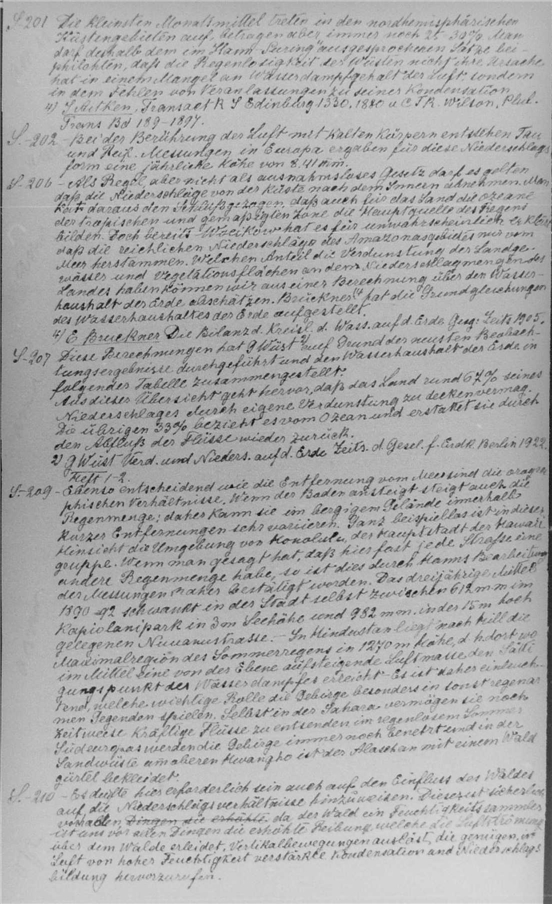 S. 201 Die kleinsten Monatsmittel treten in den nordhemisphärischen
Küstengebieten auf, betragen aber immer noch 2t. 30% Man
darf deshalb dem im Hann-Süering ausgesprochenen Satze bei-
pflichten, daß die Regenlosigkeit der Wüsten nicht ihre Ursache
hat in einem Mangel an Wasserdampfgehalt der Luft, sondern
in dem Fehlen von Veranlassungen zu seiner Kondensation
4) J Aitken, Transact R S Edinburg 1880 u C T R. Wilson, Phil.
Trans Bd 189-1897.
S.-202 -Bei der Berührung der Luft mit kalten Körpern entstehen Tau
und Reif. Messungen in Europa ergaben für diese Niederschlags
form eine jährliche Höhe von 8.41 mm.
S-206 -Als Regel, aber nicht als ausnahmsloses Gesetz darf es gelten
daß die Niederschläge von der Küste nach dem Innern abnehmen. Man
hat daraus den Schluß gezogen, daß auch für das Land die ozeane
der tropischen und gemäßigten Zone die Hauptquelle des Regens
bilden. Doch bereits Woeikow hat es für unwahrscheinlich erklärt
daß die reichlichen Niederschläge des Amazonasgebietes nur vom
Meer herstammen. Welchen Anteil die Verdunstung der Landge-
wässer und Vegetationsflächen an den Niederschlagmengen des
Landes haben können wir aus einer Berechnung über den Wasser-
haushalt der Erde abschätzen. Brückner hat die Grundgleichungen
des Wasserhaushaltes der Erde aufgestellt.
4) E Brückner Die Bilanz d. Kreisl. d. Wass. auf d. Erde Geogr. Zeits 1905.
S-207 Diese Berechnungen hat G Wüst auf Grund der neusten Beobach-
tungsergebnisse durchgeführt und den Wasserhaushalt der Erde in
folgender Tabelle zusammengestellt.
Aus dieser Übersicht geht hervor, daß das Land rund 67% seines
Niederschlages durch eigene Verdunstung zu decken vermag.
Die übrigen 33% bezieht es vom Ozean und erstattet sie durch
den Abfluß der Flüsse wieder zurück.
2) G Wüst Verd. und Nieders. auf d. Erde Zeits. d. Gesel. f. Erdk Berlin 1922
Heft 1-2.
S-209 -Ebenso entscheidend wie die Entfernung vom Meer sind die orogra
phischen Verhältnisse. Wenn der Boden ansteigt steigt auch die
Regenmenge; daher kann sie im bergigem Gelände innerhalb
kurzer Entfernungen sehr variieren. Ganz beispiellos ist in dieser
Hinsicht die Umgebung von Honolulu, der Hauptstadt der Hawaii
gruppe. Wenn man gesagt hat, daß hier fast jede Strasse eine
andere Regenmenge habe, so ist dies durch Hanns Bearbeitung
der Messungen näher bestätigt worden. Das dreijährige Mittel
1890-92 schwankt in der Stadt selbst zwischen 612 mm im
Kapiolanipark in 3m Seehöhe und 982 mm. in der 15 m hoch
gelegenen Nuuanustrasse. -In Hindustan liegt nach Hill die
Maximalregion des Sommerregens in 1270 m Höhe, d. h dort wo
im Mittel eine von der Ebene aufsteigende Luftmasse den Sätti
gungspunkt des Wasserdampfes erreicht -Es ist daher einleuch-
tend, welche wichtige Rolle die Gebirge besonders in sonst regenar
men Gegenden spielen. Selbst in der Sahara vermögen sie noch
zeitweise kräftige Flüsse zu entsenden im regenlosem Sommer
Südeuropas werden die Gebirge immer noch benetzt und in der
Sandwüste am oberen Hwangho ist der Alaschan mit einem Wald
gürtel bekleidet.
S.-210 -Es dürfte hier erforderlich sein auch auf den Einfluss des Waldes
auf die Niederschlagsverhältnisse hinzuweisen. Dieser ist sicherlich
vorhaden, Dingen die erhöhte, da der Wald ein Feuchtigkeitssammler
ist uns vor allen Dingen die erhöhte Reibung, welche die Luftströmung
über dem Walde erleidet, Vertikalbewegungen auslöst, die genügen, in
Luft von hoher Feuchtigkeit verstärkte Kondensation und Niederschlags
bildung hervorzurufen.